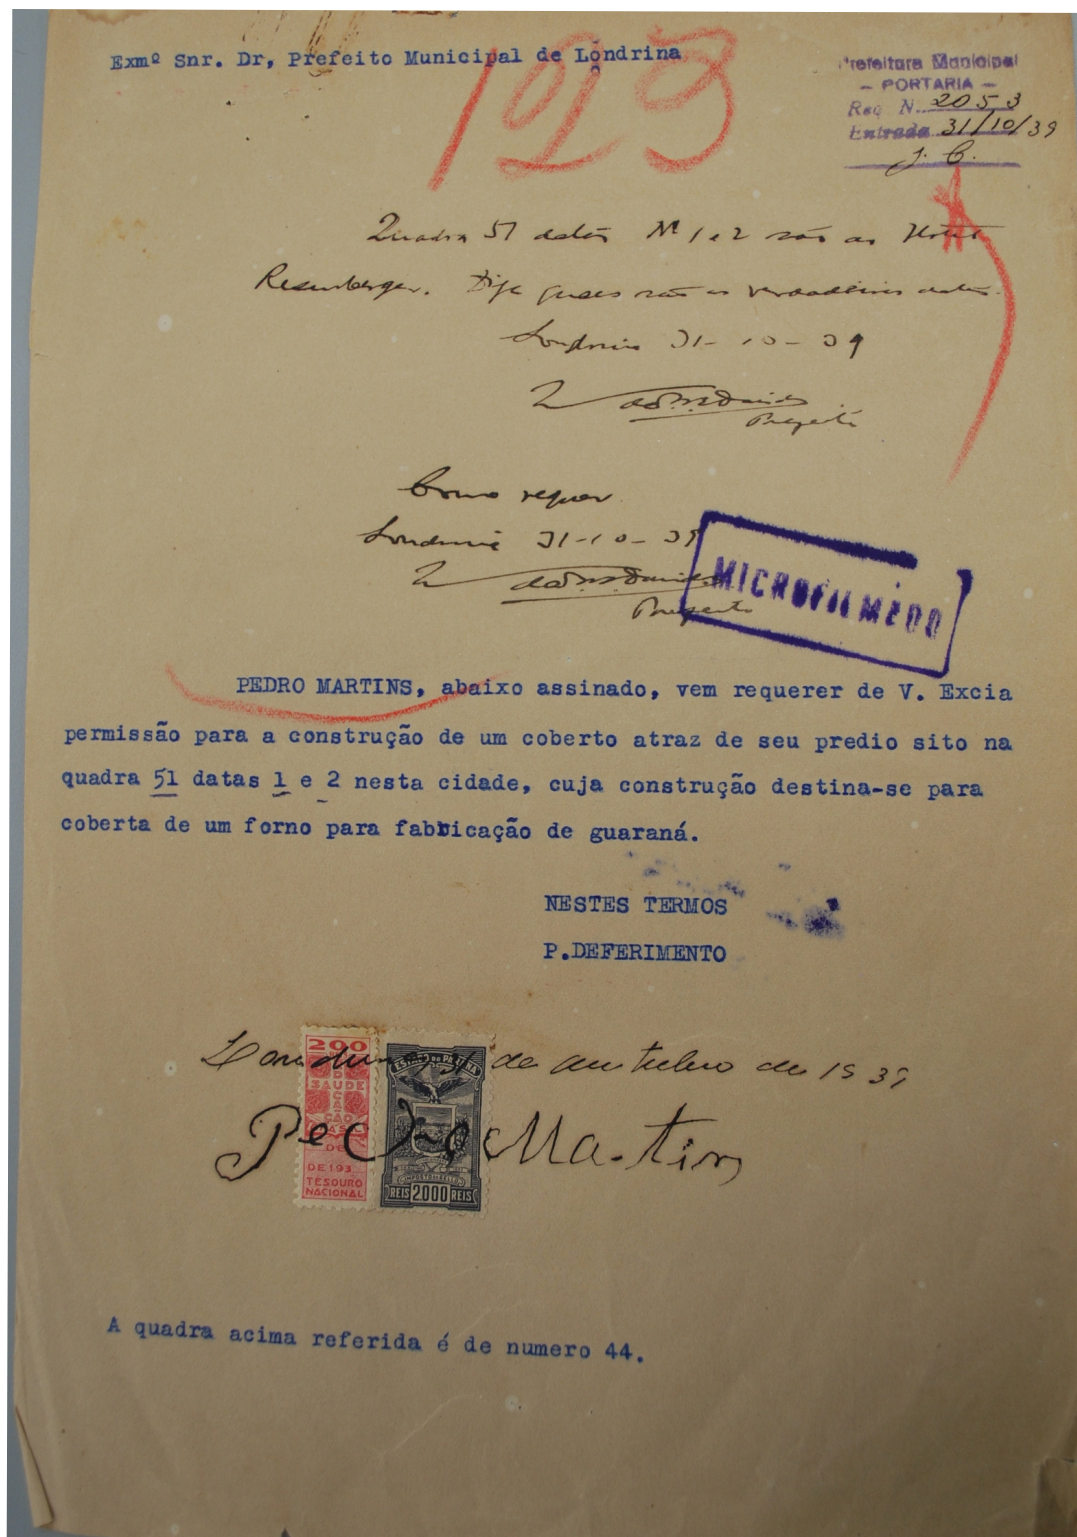 Exmº Snr. Dr, Prefeito Municipal de Londrina
129
Prefeitura Municipal
— PORTARIA —
Req N. 2053
Entrada 31/10/39
J. C.
Quadra 51 datas Nº 1 e 2 são ao Hotel
Rosenberger. Diga quaes são as verdadeiras datas.
Londrina 31-10-39
Prefeito
Como requer
Londrina 31-10-39
Prefeito
MICROFILMADO
PEDRO MARTINS, abaixo assinado, vem requerer de V. Excia
permissão para a construção de um coberto atraz de seu predio sito na
quadra 51 datas 1 e 2 nesta cidade, cuja construção destina-se para
coberta de um forno para fabricação de guaraná.
NESTES TERMOS
P.DEFERIMENTO
Londrina, 31 de outubro de 1939
Pedro Martins
200
SAUDE
DE
DE 193
TESOURO
NACIONAL
ESTADO DO PARANÁ
REIS 2000 REIS
A quadra acima referida é de numero 44.